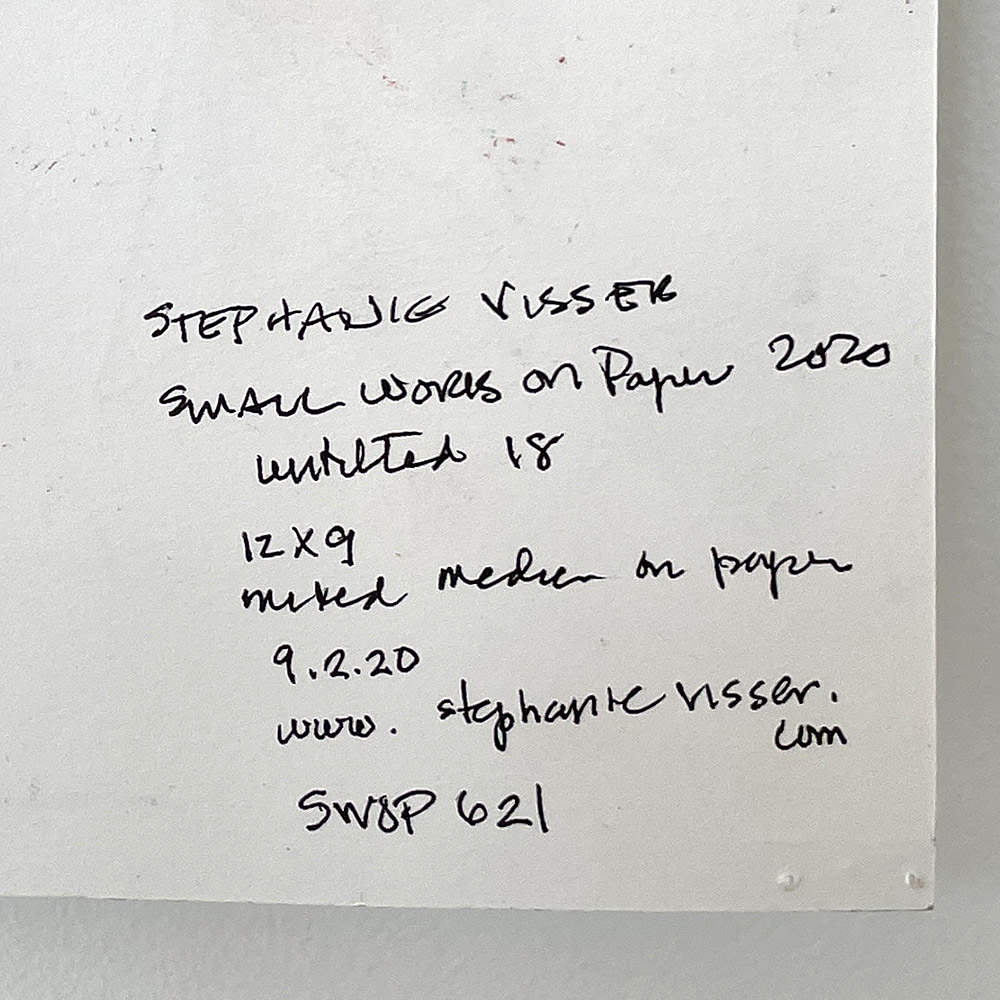 STEPHANIE VISSER
SMALL WORKS on Paper 2020
untitled 18
12 X 9
mixed media on paper
9.2.20
www. stephanie visser.
com
SWOP 621